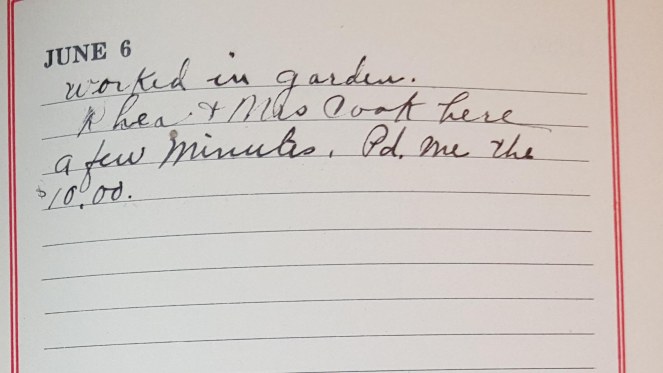 JUNE 6
worked in garden.
Rhea & Mrs Cook here
a few minutes. Pd. me the
$10.00.